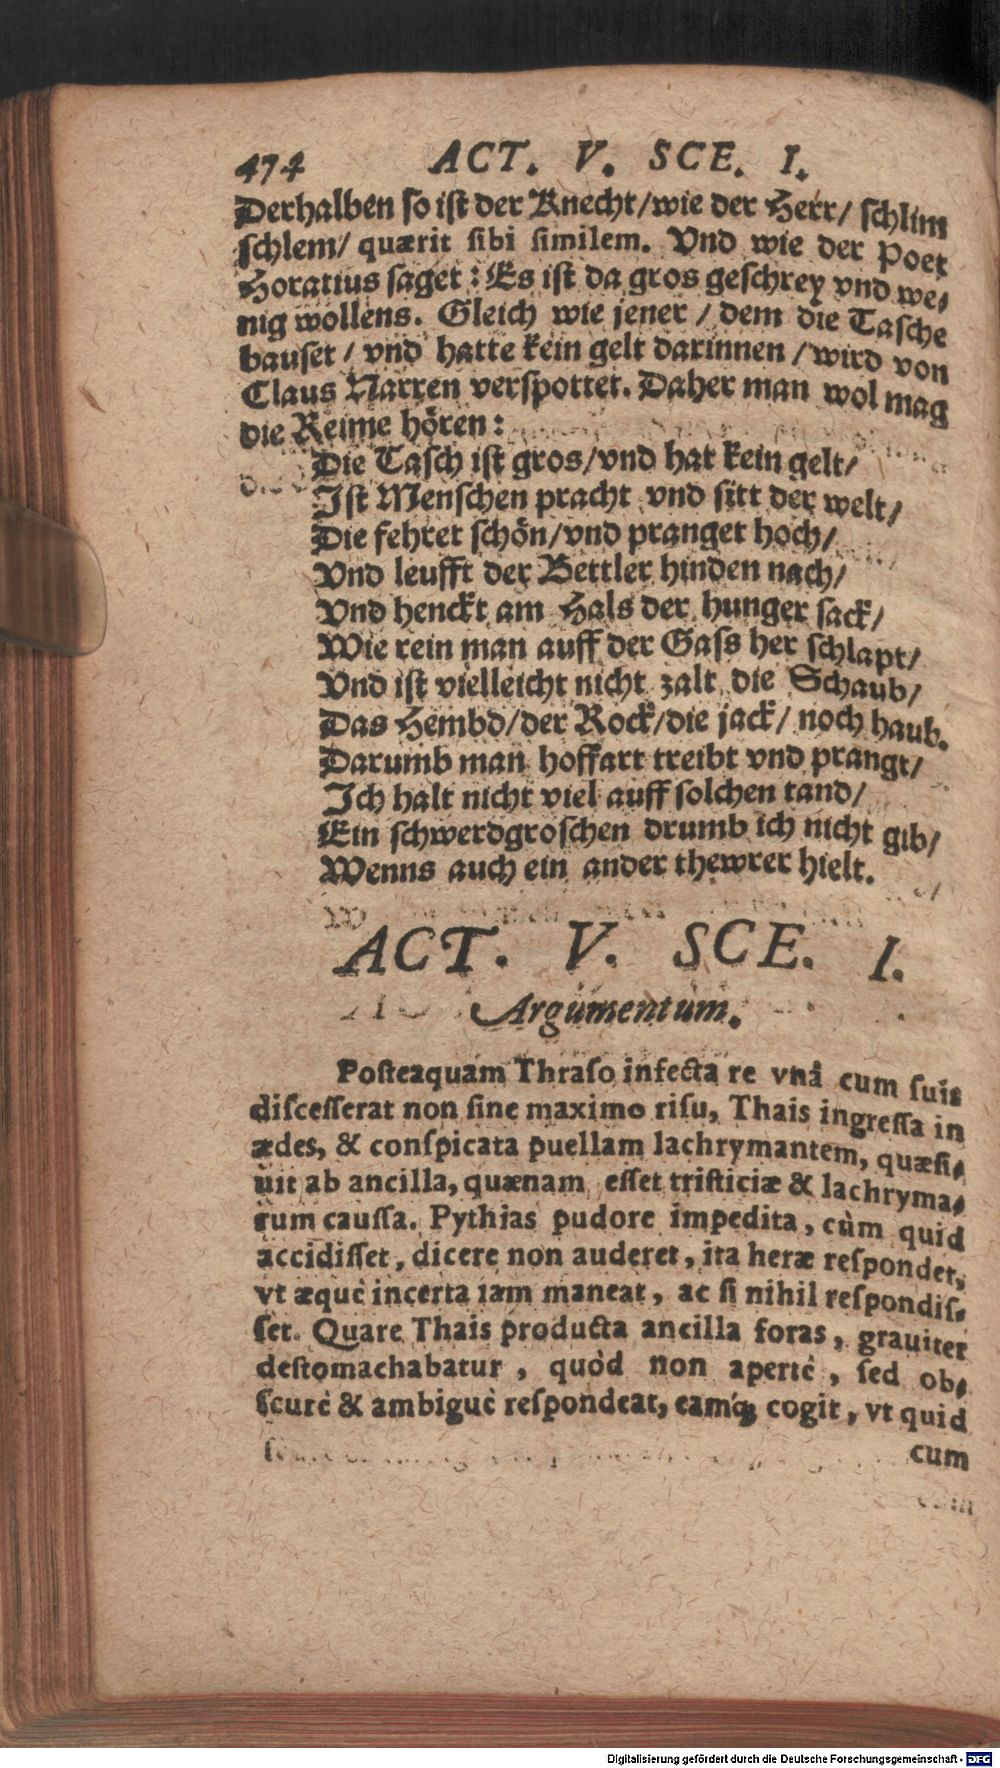 474 ACT. V. SCE. I.
Derhalben ſo iſt der Knecht/wie der Herr/ ſchlim
ſchlem/ quærit ſibi ſimilem. Vnd wie der Poet
Horatius ſaget: Es iſt da gros geſchrey vnd we-
nig wollens. Gleich wie jener / dem die Taſche
bauſet / vnd hatte kein gelt darinnen / wird von
Claus Narren verſpottet. Daher man wol mag
die Reime hören:
Die Taſch iſt gros/vnd hat kein gelt/
Iſt Menſchen pracht vnd ſitt der welt/
Die fehret ſchön/vnd pranget hoch/
Vnd leufft der Bettler hinden nach/
Vnd henckt am Hals der hunger ſack/
Wie rein man auff der Gaſs her ſchlapt/
Vnd iſt vielleicht nicht zalt die Schaub/
Das Hembd/der Rock/die jack/ noch haub.
Darumb man hoffart treibt vnd prangt/
Ich halt nicht viel auff ſolchen tand/
Ein ſchwerdgroſchen drumb ich nicht gib/
Wenns auch ein ander thewrer hielt.
ACT. V. SCE. I.
Argumentum.
Poſteaquam Thraſo infecta re vnâ cum ſuis
diſceſſerat non ſine maximo riſu, Thais ingreſſa in
ædes, & conſpicata puellam lachrymantem, quæſi-
uit ab ancilla, quænam eſſet triſticiæ & lachryma-
rum cauſſa. Pythias pudore impedita, cùm quid
accidiſſet, dicere non auderet, ita heræ reſpondet,
vt æquè incerta iam maneat, ac ſi nihil reſpondiſ-
ſet. Quare Thais producta ancilla foras, grauiter
deſtomachabatur, quòd non apertè, ſed ob-
ſcurè & ambiguè reſpondeat, eamq́; cogit, vt quid
cum
Digitalisierung gefördert durch die Deutsche Forschungsgemeinschaft - DFG